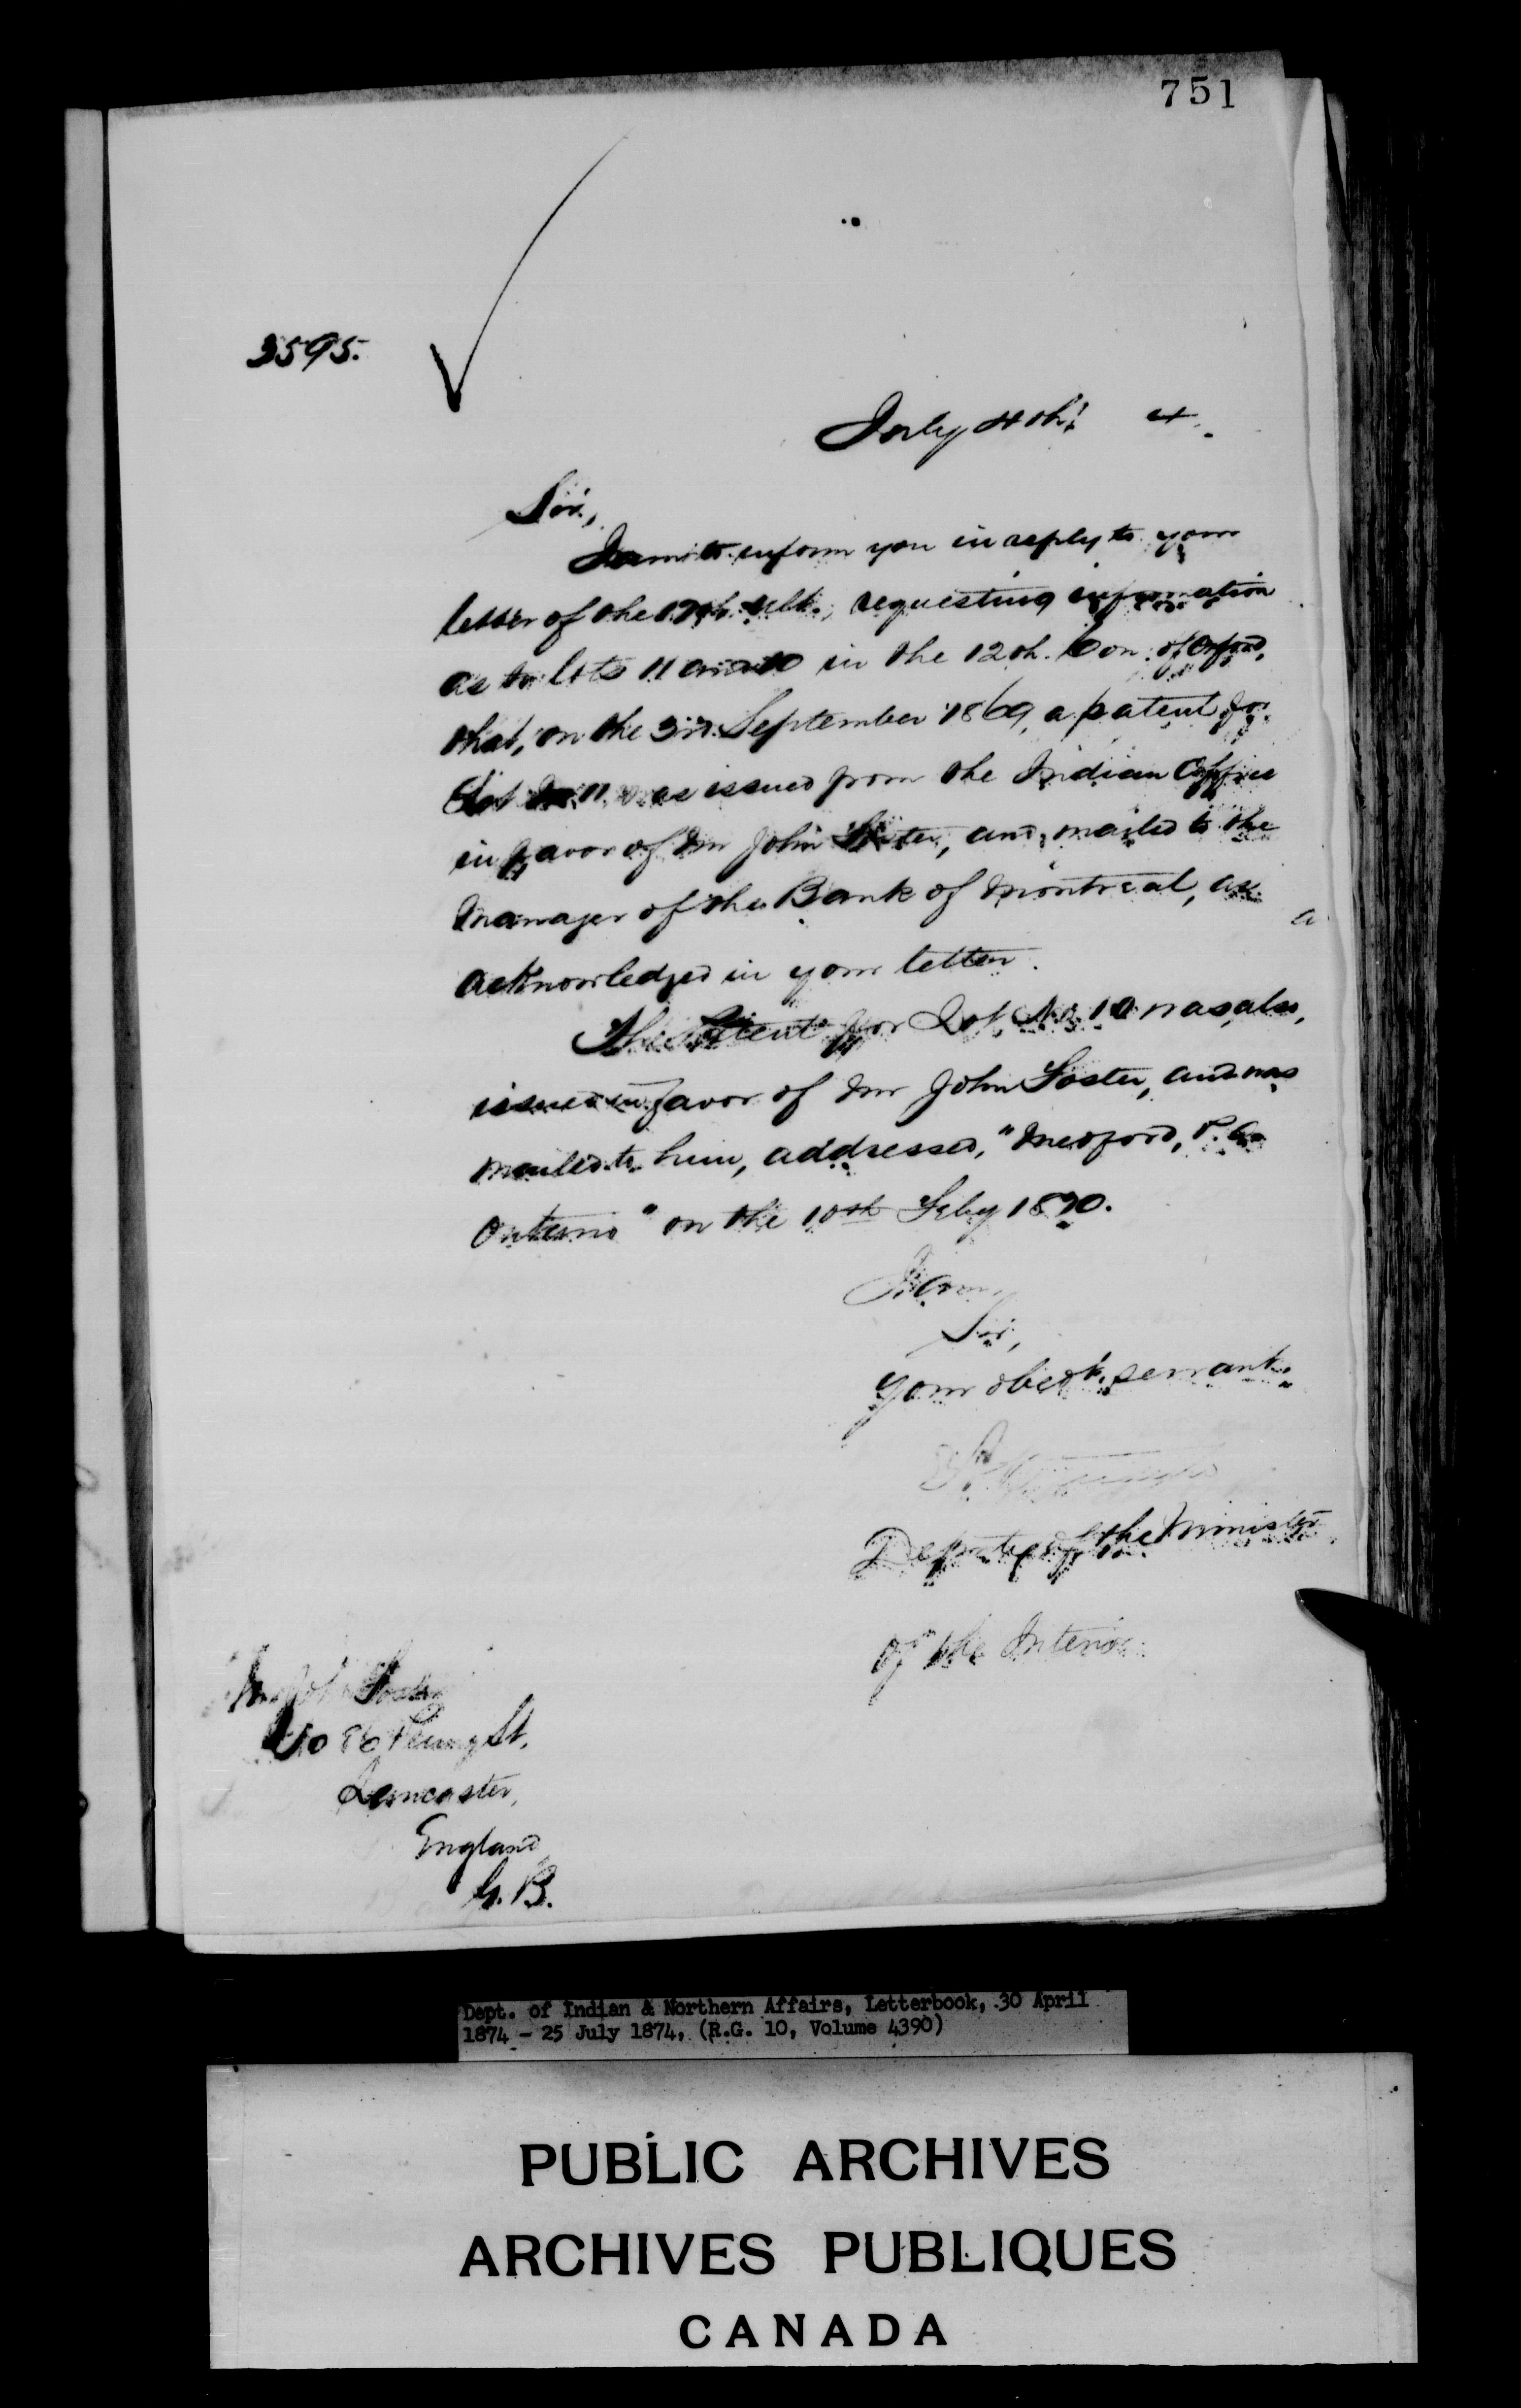 751
3595.
July 4th, 4.
Sir,
I am to inform you in reply to your
letter of the 17th ult., requesting information
as to lots 11 and 10 in the 12th. Con: of Orford,
that, on the 3rd. September 1869, a patent for
Lot No 11 was issued from the Indian Office
in favor of Mr John Foster, and mailed to the
Manager of the Bank of Montreal, as
acknowledged in your letter.
The Patent for Lot No 10 was, also,
issued in favor of Mr John Foster, and was
mailed to him, addressed, "Medford, P.O.
Ontario" on the 10th Feby 1870.
I am,
Sir,
Your obedt. servant.
Deputy of the Minister
of the Interior.
Mr John Foster
St,
Lancaster,
England,
G.B.
Dept. of Indian & Northern Affairs, Letterbook, 30 April
1874 - 25 July 1874, (R.G. 10, Volume 4390)
PUBLIC ARCHIVES
ARCHIVES PUBLIQUES
CANADA